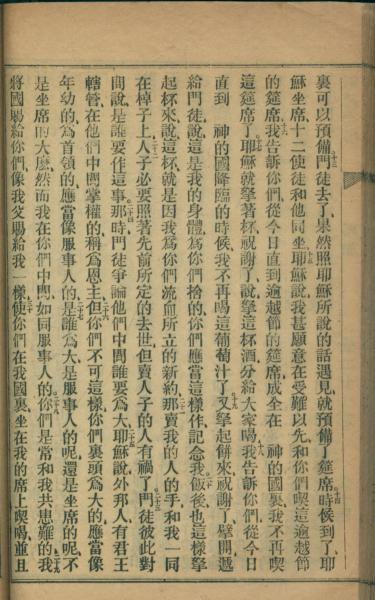 裏可以預備門徒去了果然照耶穌所說的話遇見就預備了筵席時候到了耶
穌坐席十二使徒和他同坐耶穌說我甚願意在受難以先和你們喫這逾越節
的筵席我告訴你們從今日直到逾越節的筵席成全在 神的國裏我不再喫
這筵席了耶穌就拏著杯祝謝了說拏這杯酒分給大家喝我告訴你們從今日
直到 神的國降臨的時候我不再喝這葡萄汁了又拏起餅來祝謝了擘開遞
給門徒說這是我的身體爲你們捨的你們應當這樣作記念我飯後也這樣拏
起杯來說這杯就是因我爲你們流血所立的新約那賣我的人的手和我一同
在棹子上人子必要照著先前所定的去世但賣人子的人有禍了門徒彼此對
問說是誰要作這事那時門徒爭論他們中間誰要爲大耶穌說外邦人有君王
轄管在他們中間掌權的稱爲恩主但你們不可這樣你們裏頭爲大的應當像
年幼的爲首領的應當像服事人的是誰爲大是服事人的呢還是坐席的呢不
是坐席的大麽然而我在你們中間如同服事人的你們是常和我共患難的我
將國賜給你們像我父賜給我一樣使你們在我國裏坐在我的席上喫喝並且